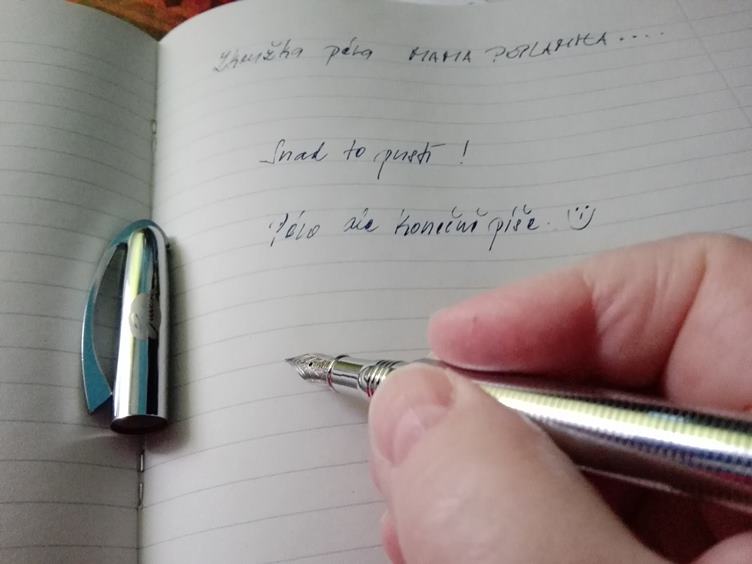 Zkouška péra MAMA ....
Snad to pustí !
Péro ale konečně píše. :)